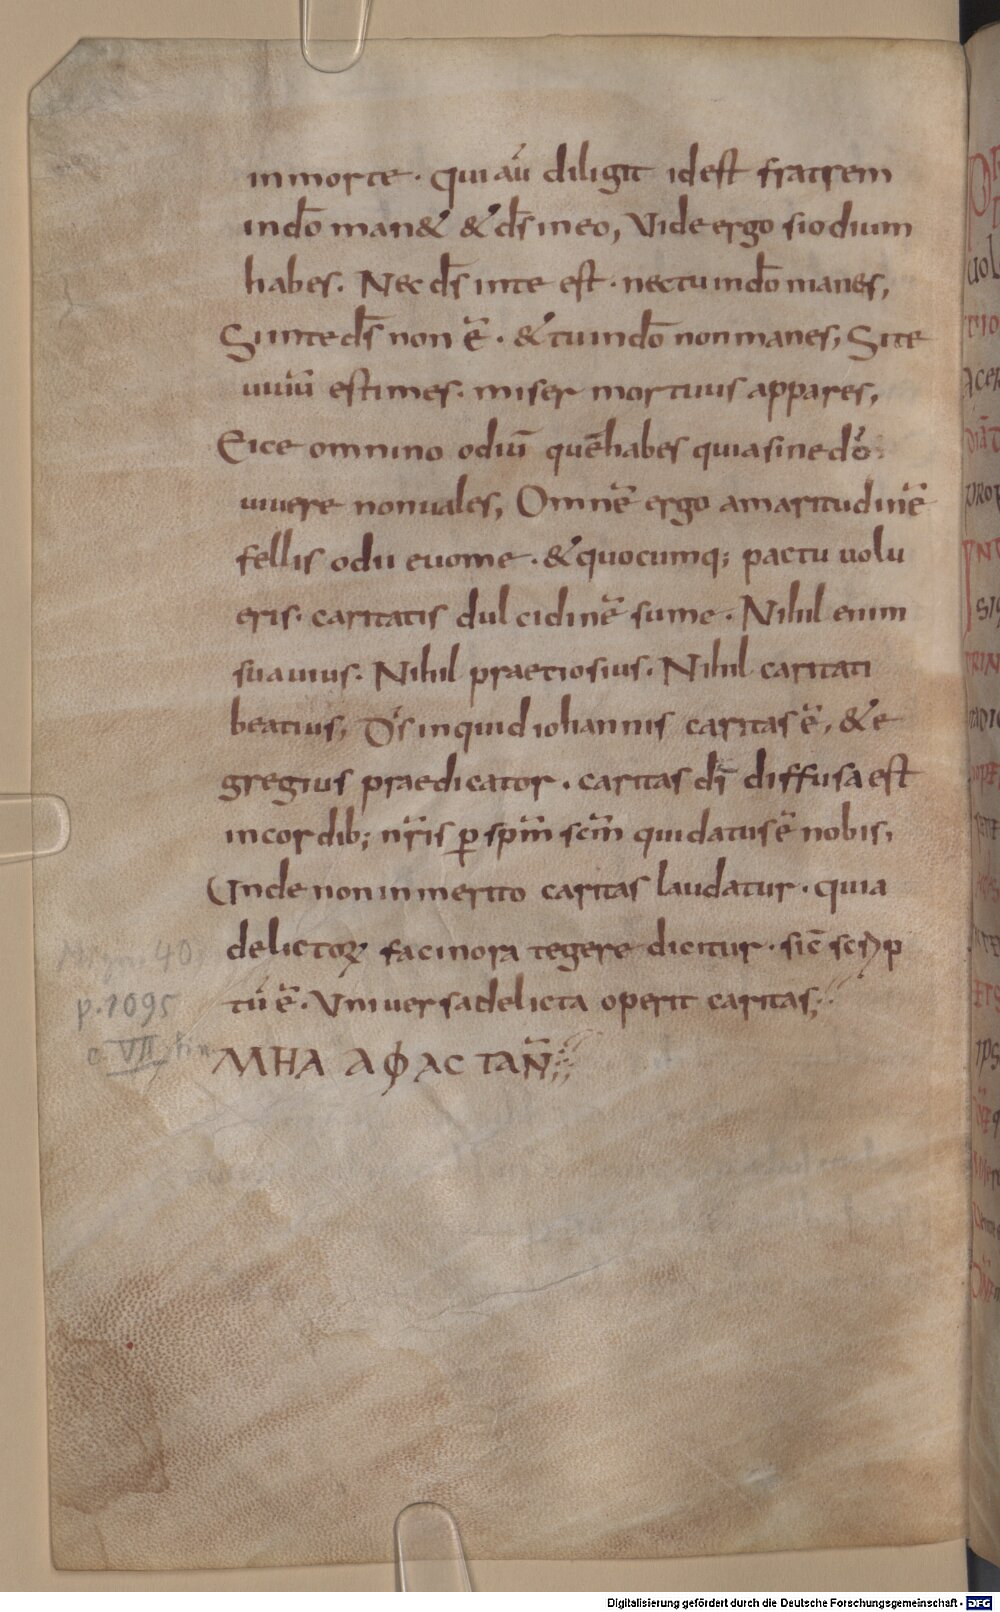 inmorte. qui aū diligit idest fratrem
indō man& & d̄s ineo, Vide ergo siodium
habes. Nec d̄s inte est. nectu indō manes,
Siinted̄s non ē. & tuindō nonmanes, Site
uiuū estimes. miser mortuus appares,
Eice omnino odiū quēhabes quiasinedō
uiuere nonuales, Omnē ergo amaritudinē
fellis odii euome. & quocumq; pactu uolu
eris. caritatis dulcidinē sume. Nihil enim
suauius. Nihil praetiosius. Nihil caritati
beatius, D̄s inquid iohannis caritas ē, & e
gregius praedicator. caritas dī diffusa est
incordib; nr̄is ꝑ sp̄m sc̄m qui datus ē nobis,
Unde non inmerito caritas laudatur. quia
delictoꝝ facinora tegere dicitur. sic̄ scrip
tū ē. Vniuersadelicta operit caritas;
ΜΗΑ ΑΦ ΑС ΤΑΝ̄
p. 1095
c. VII fin
Digitalisierung gefördert durch die Deutsche Forschungsgemeinschaft - DFG